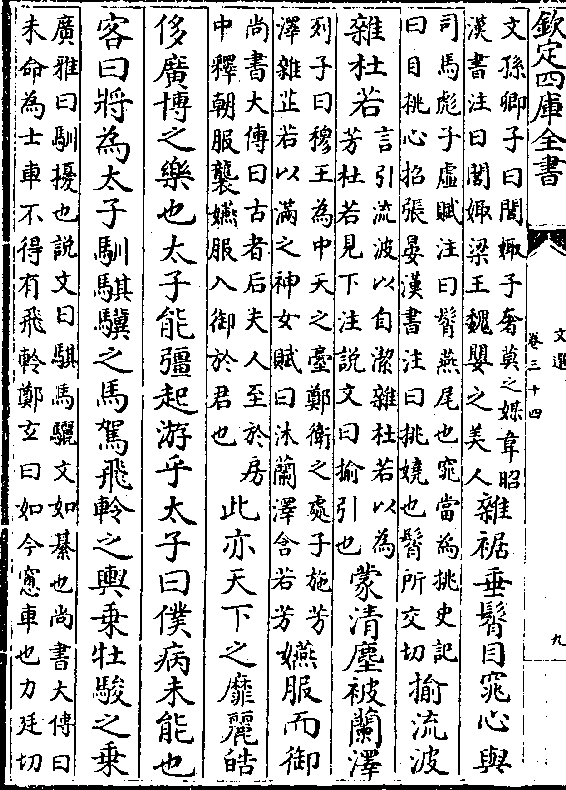 欽定四庫全書
文選
卷三十四
九
文孫卿子曰閭娵子奢莫之媒韋昭
漢書注曰閭娵梁王魏嬰之美人
雜裾垂髾目窕心與
司馬彪子虛賦注曰髾燕尾也窕當為挑史記
曰目挑心招張晏漢書注曰挑嬈也髾所交切
揄流波
雜杜若
言引流波以自潔雜杜若以為
芳杜若見下注說文曰揄引也
蒙清塵被蘭澤
列子曰穆王為中天之臺鄭衛之處子施芳
澤雜芷若以滿之神女賦曰沐蘭澤含若芳
嬿服而御
尚書大傳曰古者后夫人至於房
中釋朝服襲嬿服入御於君也
此亦天下之靡麗皓
侈廣博之樂也太子能彊起游乎太子曰僕病未能也
客曰將為太子馴騏驥之馬駕飛軨之輿乘牡駿之乘
廣雅曰馴擾也說文曰騏馬驪文如綦也尚書大傳曰
未命為士車不得有飛軨鄭玄曰如今窻車也力廷切